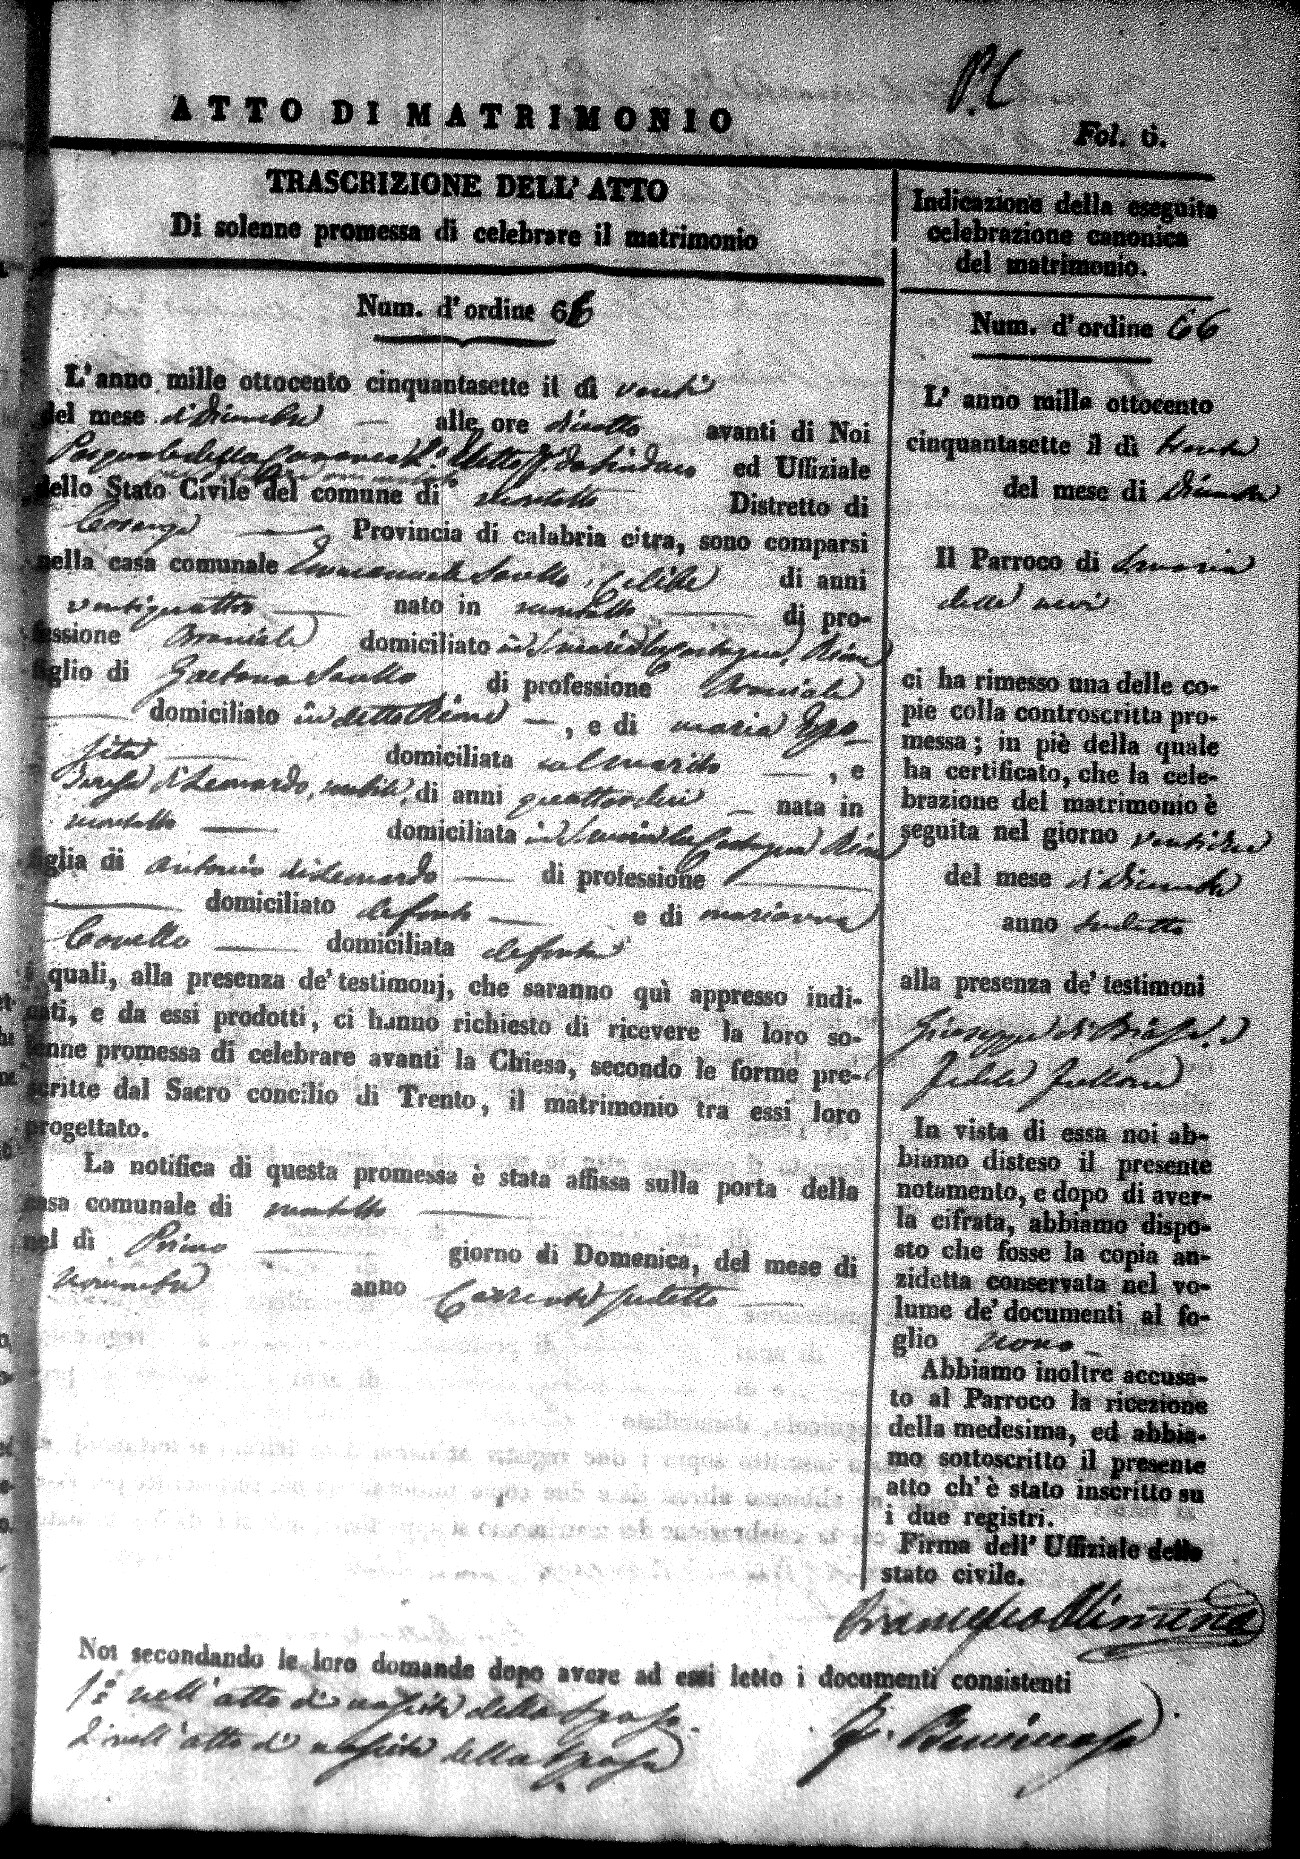 ATTO DI MATRIMONIO
Fol. 6.
TRASCRIZIONE DELL' ATTO
Di solenne promessa di celebrare il matrimonio
Num. d'ordine 66
L'anno mille ottocento cinquantasette il dì venti
del mese di Dicembre alle ore diciotto avanti di Noi
Pasquale della ed Uffiziale
dello Stato Civile del comune di Montalto Distretto di
Cosenza Provincia di calabria citra, sono comparsi
nella casa comunale Emmanuele Scullo, Celibe di anni
ventiquattro nato in Montalto di pro-
fessione Bracciale domiciliato in
figlio di Gaetano di professione Bracciale
domiciliato in detto Rione, e di Maria Espo-
sita domiciliata col marito, e
Teresa di Leonardo, nubile, di anni quattordici nata in
Montalto domiciliata in
figlia di Antonio di Leonardo di professione
domiciliato defonto e di Marianna
Covello domiciliata defonta
i quali, alla presenza de' testimonj, che saranno quì appresso indi-
cati, e da essi prodotti, ci hanno richiesto di ricevere la loro so-
lenne promessa di celebrare avanti la Chiesa, secondo le forme pre-
scritte dal Sacro concilio di Trento, il matrimonio tra essi loro
progettato.
La notifica di questa promessa è stata affissa sulla porta della
casa comunale di Montalto
nel dì Primo giorno di Domenica, del mese di
Novembre anno Corrente sudetto
Noi secondando le loro domande dopo avere ad essi letto i documenti consistenti
1.° nell'atto di nascita dello Sposo.
2. nell'atto di nascita della Sposa
Indicazione della eseguita
celebrazione canonica
del matrimonio.
Num. d'ordine 66
L' anno mille ottocento
cinquantasette il dì trenta
del mese di Dicembre
Il Parroco di S. Maria
della neve
ci ha rimesso una delle co-
pie colla controscritta pro-
messa; in piè della quale
ha certificato, che la cele-
brazione del matrimonio è
seguita nel giorno
del mese di Dicembre
anno sudetto
alla presenza de' testimoni
Giuseppe di Biase, e
Fedele
In vista di essa noi ab-
biamo disteso il presente
notamento, e dopo di aver-
la cifrata, abbiamo dispo-
sto che fosse la copia an-
zidetta conservata nel vo-
lume de' documenti al fo-
glio nono
Abbiamo inoltre accusa-
to al Parroco la ricezione
della medesima, ed abbia-
mo sottoscritto il presente
atto ch' è stato inscritto su
i due registri.
Firma dell' Uffiziale dello
stato civile.
Francesco Alimena